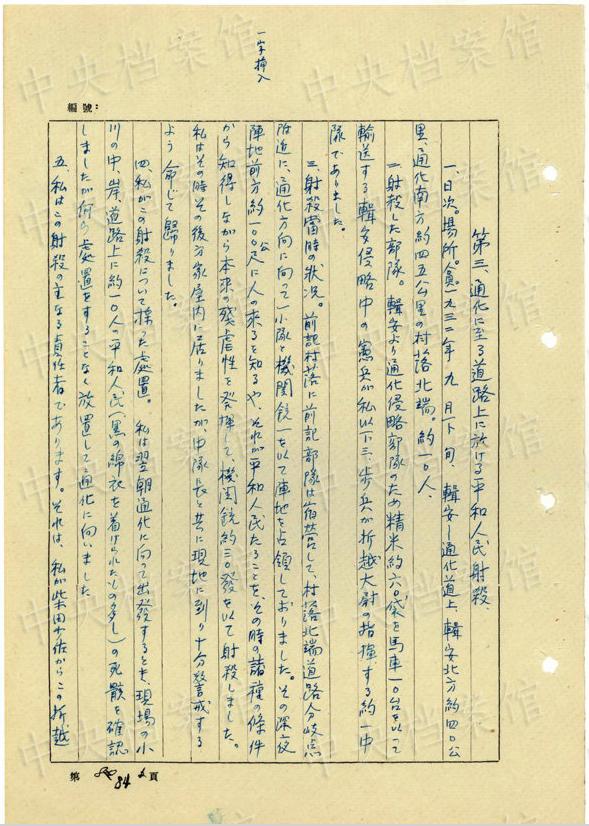 一字挿入
編號：
第三、通化に至る道路上に於ける平和人民射殺.
一、日次。場所。員。一九三二年 九 月下旬、輯安—通化道上、輯安北方約四〇公
里、通化南方約四五公里の村落北端 約一〇人、
二、射殺した部隊。 輯安より通化侵略部隊のため精米約六〇袋を馬車一〇台を以って
輸送する輯安侵略中の憲兵が私以下三、歩兵が折越大尉の指揮する約一中
隊でありました。
三、射殺當時の状況。 前記村落に前記部隊は宿営して、村落北端道路分岐点
附近に、通化方向に向って小隊と機関銃一を以て陣地を占領しておりました。その深夜
陣地前方約一〇〇公尺に人の来るを知るや、それが平和人民たることを、その時の諸種の條件
から知得しながら本来の残虐性を発揮して、機関銃約三〇發を以て射殺しました。
私はその時その後方家屋内に居りましたが、中隊長と共に現地に到り十分警戒する
よう命じて歸りました。
四、私がこの射殺について採った處置。 私は翌朝通化に向って出發するとき、現場の小
川の中、岸、道路上に約一〇人の平和人民(黒の綿衣を着けられたもの多し)の死骸を確認
しましたが何ら處置をすることなく放置して通化に向いました
五、私はこの射殺の主なる責任者であります。それは、私が柴田少佐からこの折越
第 84 頁
中央档案馆